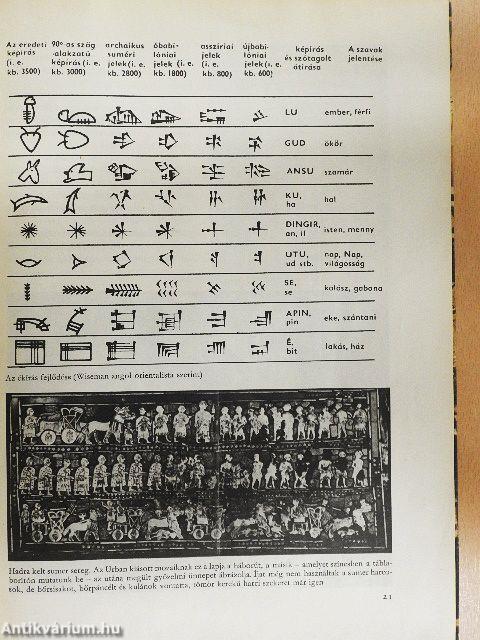 Az eredeti képírás (i. e. kb. 3500)
90°-os szög -alakzatú képírás (i. e. kb. 3000)
archaikus suméri jelek (i. e. kb. 2800)
óbabi- lóniai jelek (i. e. kb. 1800)
asszíriai jelek (i. e. kb. 800)
újbabi- lóniai jelek (i. e. kb. 600)
képírás és szótagolt átírása
A szavak jelentése
LU ember, férfi
GUD ökör
ANSU szamár
KU, ha hal
DINGIR, an, il isten, menny
UTU, ud stb. nap, Nap, világosság
SE, se kalász, gabona
APIN, pin eke, szántani
É, bit lakás, ház
Az ékírás fejlődése (Wiseman angol orientalista szerint)
Hadra kelt sumer sereg. Az Urban kiásott mozaiknak ez a lapja a háborút, a másik – amelyet színesben a tábla-
borítón mutatunk be – az utána megült győzelmi ünnepet ábrázolja. Íjat még nem használtak a sumer harco-
sok, de bőrsisakot, bőrpáncélt és kulánok vontatta, tömör kerekű harci szekeret már igen
21
Antikvárium.hu